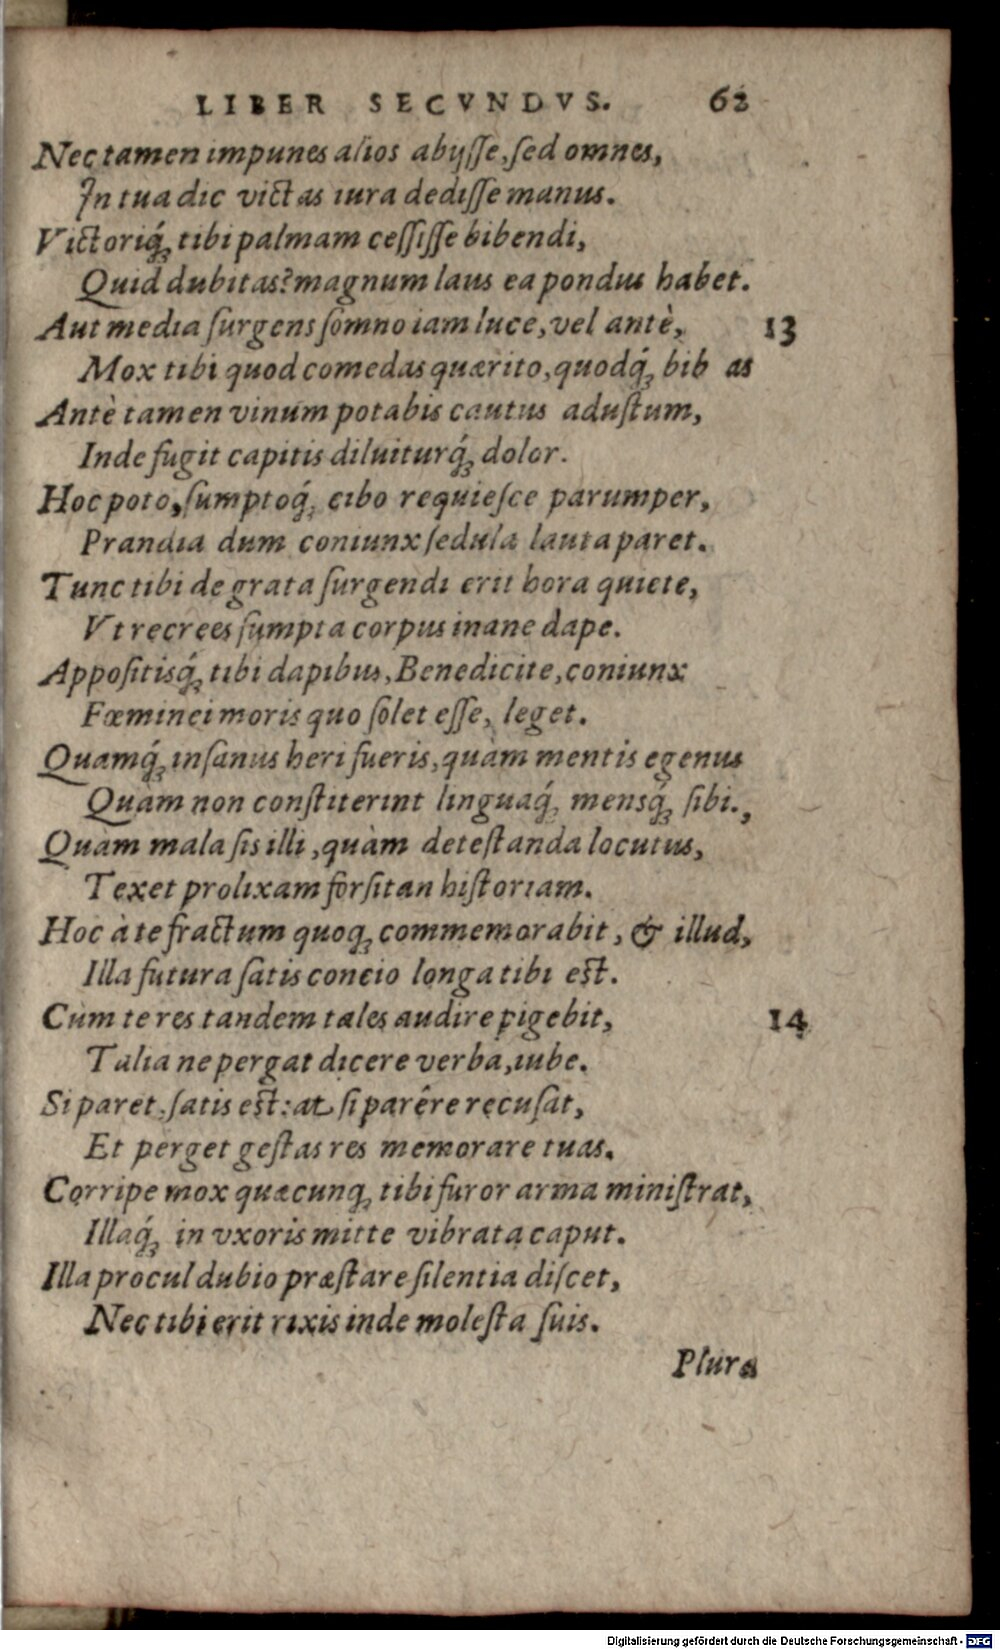 LIBER SECVNDVS. 62
Nec tamen impunes alios abijſſe, ſed omnes,
In tua dic victas iura dediſſe manus.
Victoriq́; tibi palmam ceſſiſſe bibendi,
Quid dubitas? magnum laus ea pondus habet.
Aut media ſurgens ſomno iam luce, vel antè, 13
Mox tibi quod comedas quærito, quodq́; bib as
Antè tamen vinum potabis cautus aduſtum,
Inde fugit capitis diluiturq́; dolor.
Hoc poto, ſumptoq́; cibo requieſce parumper,
Prandia dum coniunx ſedula lauta paret.
Tunc tibi de grata ſurgendi erit hora quiete,
Vt recrees ſumpta corpus inane dape.
Appoſitisq́; tibi dapibus, Benedicite, coniunx
Fœminei moris quo ſolet eſſe, leget.
Quamq́; inſanus heri fueris, quàm mentis egenus
Quàm non conſtiterint linguaq́; mensq́; ſibi.,
Quàm mala ſis illi, quàm deteſtanda locutus,
Texet prolixam forſitan hiſtoriam.
Hoc à te fractum quoq; commemorabit, & illud,
Illa futura ſatis concio longa tibi eſt.
Cùm te res tandem tales audire pigebit, 14
Talia ne pergat dicere verba, iube.
Si paret, ſatis eſt: at ſi parêre recuſat,
Et perget geſtas res memorare tuas.
Corripe mox quæcunq; tibi furor arma miniſtrat,
Illaq́; in vxoris mitte vibrata caput.
Illa procul dubio præſtare ſilentia diſcet,
Nec tibi erit rixis inde moleſta ſuis.
Plura
Digitalisierung gefördert durch die Deutsche Forschungsgemeinschaft - DFG